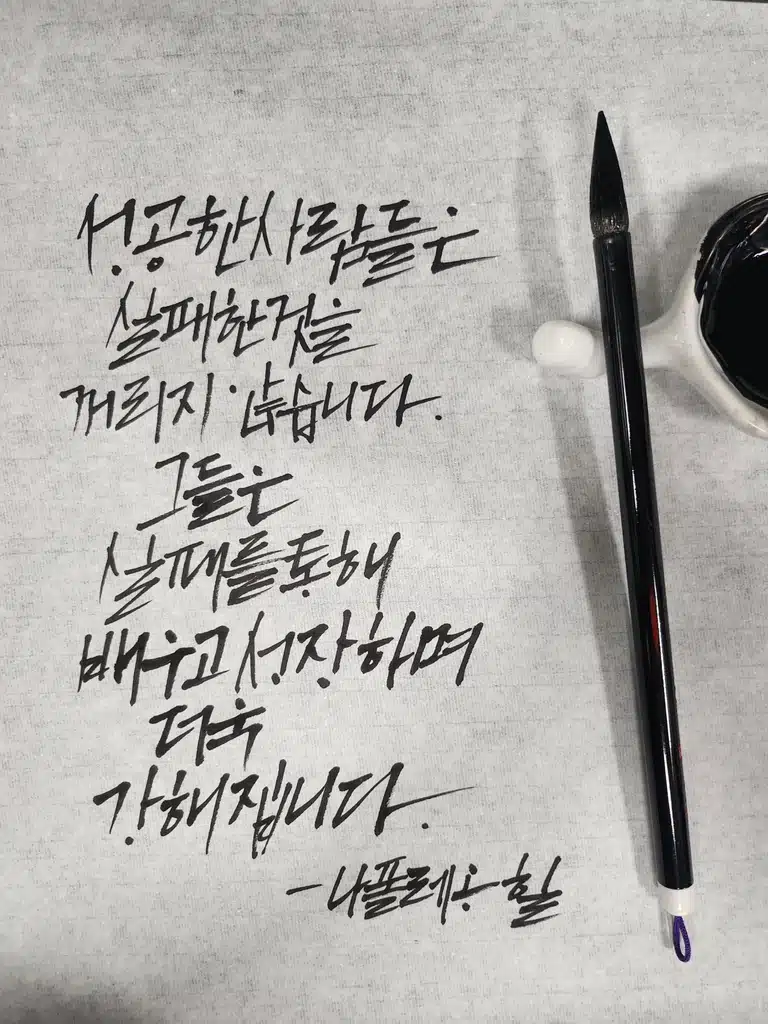 성공한사람들은
실패한것을
꺼리지 않습니다.
그들은
실패를통해
배우고성장하며
더욱
강해집니다.
-나폴레옹 힐